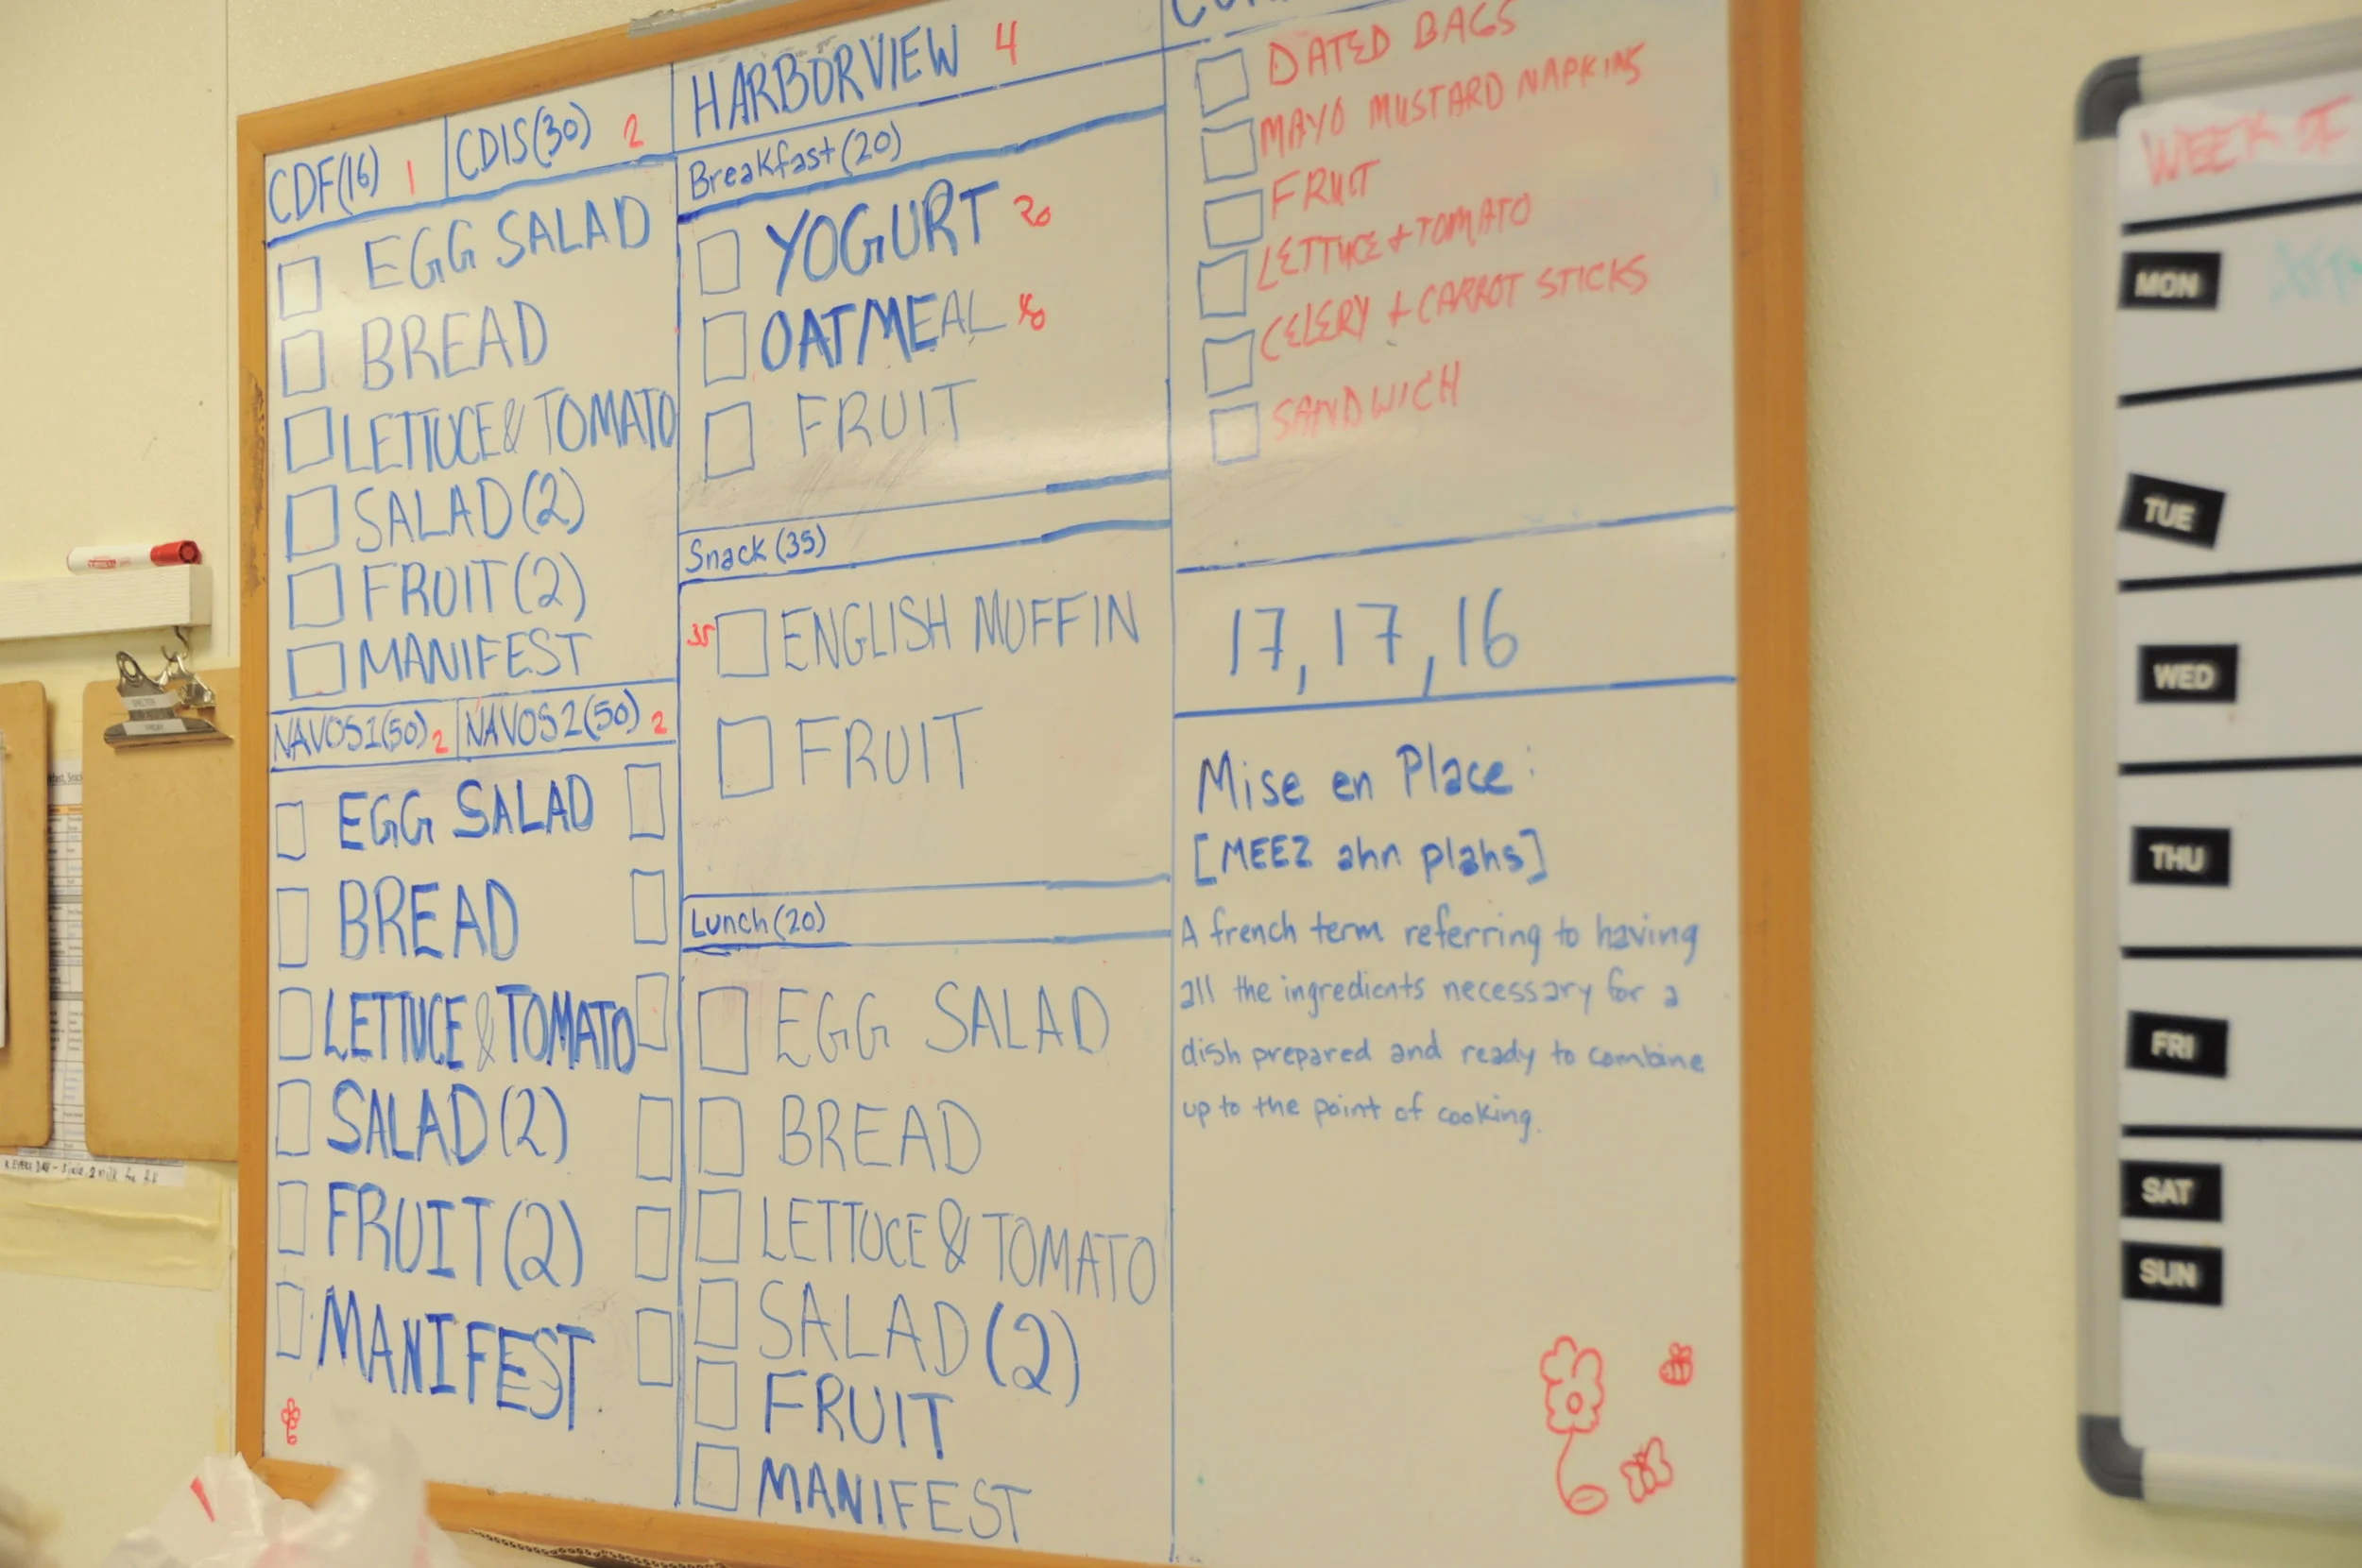 CDF(16) 1
CDIS(30) 2
EGG SALAD
BREAD
LETTUCE & TOMATO
SALAD (2)
FRUIT (2)
MANIFEST
NAVOS1(50) 2
NAVOS2(50) 2
EGG SALAD
BREAD
LETTUCE & TOMATO
SALAD (2)
FRUIT (2)
MANIFEST
HARBORVIEW 4
Breakfast (20)
YOGURT 20
OATMEAL
FRUIT
Snack (35)
35 ENGLISH MUFFIN
FRUIT
Lunch (20)
EGG SALAD
BREAD
LETTUCE & TOMATO
SALAD (2)
FRUIT
MANIFEST
DATED BAGS
MAYO MUSTARD NAPKINS
FRUIT
LETTUCE + TOMATO
CELERY + CARROT STICKS
SANDWICH
17, 17, 16
Mise en Place:
[MEEZ ahn plahs]
A french term referring to having
all the ingredients necessary for a
dish prepared and ready to combine
up to the point of cooking.
WEEK OF
MON
TUE
WED
THU
FRI
SAT
SUN